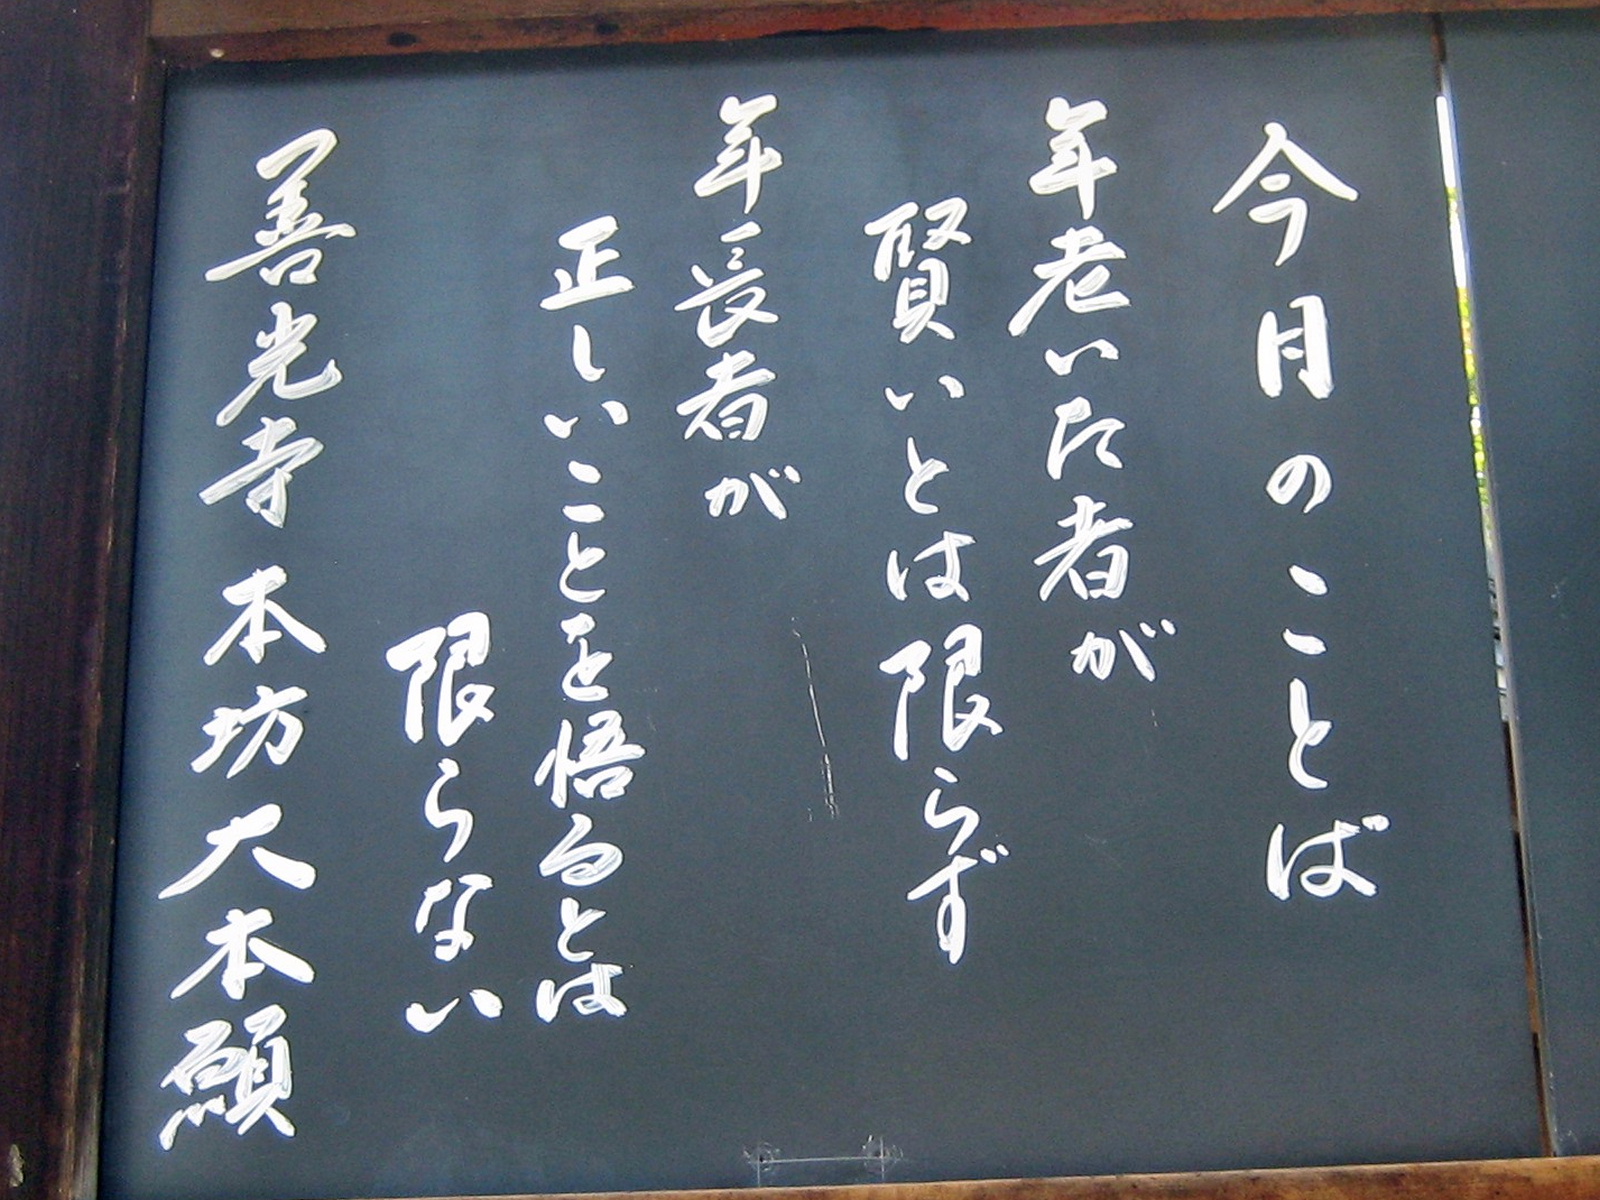 今月のことば
年老いた者が
賢いとは限らず
年長者が
正しいことを悟るとは
限らない
善光寺本坊大本願